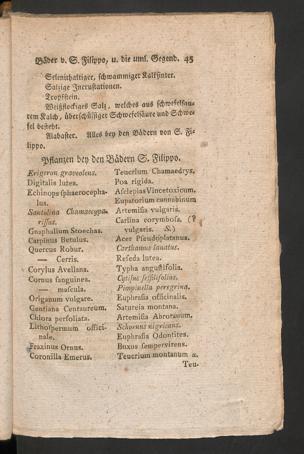 Bäder v. S. Filippo, u. die uml. Gegend. 45
Selenithaltiger, schwammiger Kalksinter.
Salzige Incrustationen.
Tropfstein.
Weißflockiges Salz, welches aus schwefelsau-
rem Kalch, überschüssiger Schwefelsäure und Schwe-
fel besteht.
Alabaster. Alles bey den Bädern von S. Fi-
lippo.
Pflanzen bey den Bädern S. Filippo.
Erigeron graveolens.
Digitalis lutea.
Echinops sphaerocepha-
lus.
Santolina Chamaecypa-
rissus.
Gnaphalium Stoechas.
Carpinus Betulus.
Quercus Robur.
— Cerris.
Corylus Avellana.
Cornus sanguinea.
— mascula.
Origanum vulgare.
Gentiana Centaureum.
Chlora perfoliata.
Lithospermum offici-
nale.
Fraxinus Ornus.
Coronilla Emerus.
Teucrium Chamaedrys.
Poa rigida.
Asclepias Vincetoxicum.
Eupatorium cannabinum
Artemisia vulgaris.
Carlina corymbosa. (?
vulgaris. S.)
Acer Pseudoplatanus.
Carthamus lanatus.
Reseda lutea.
Typha angustifolia.
Cytisus sessilifolius.
Pimpinella peregrina.
Euphrasia officinalis.
Satureia montana.
Artemisia Abrotanum.
Schoenus nigricans.
Euphrasia Odontites.
Buxus sempervirens.
Teucrium montanum u.
Teu-